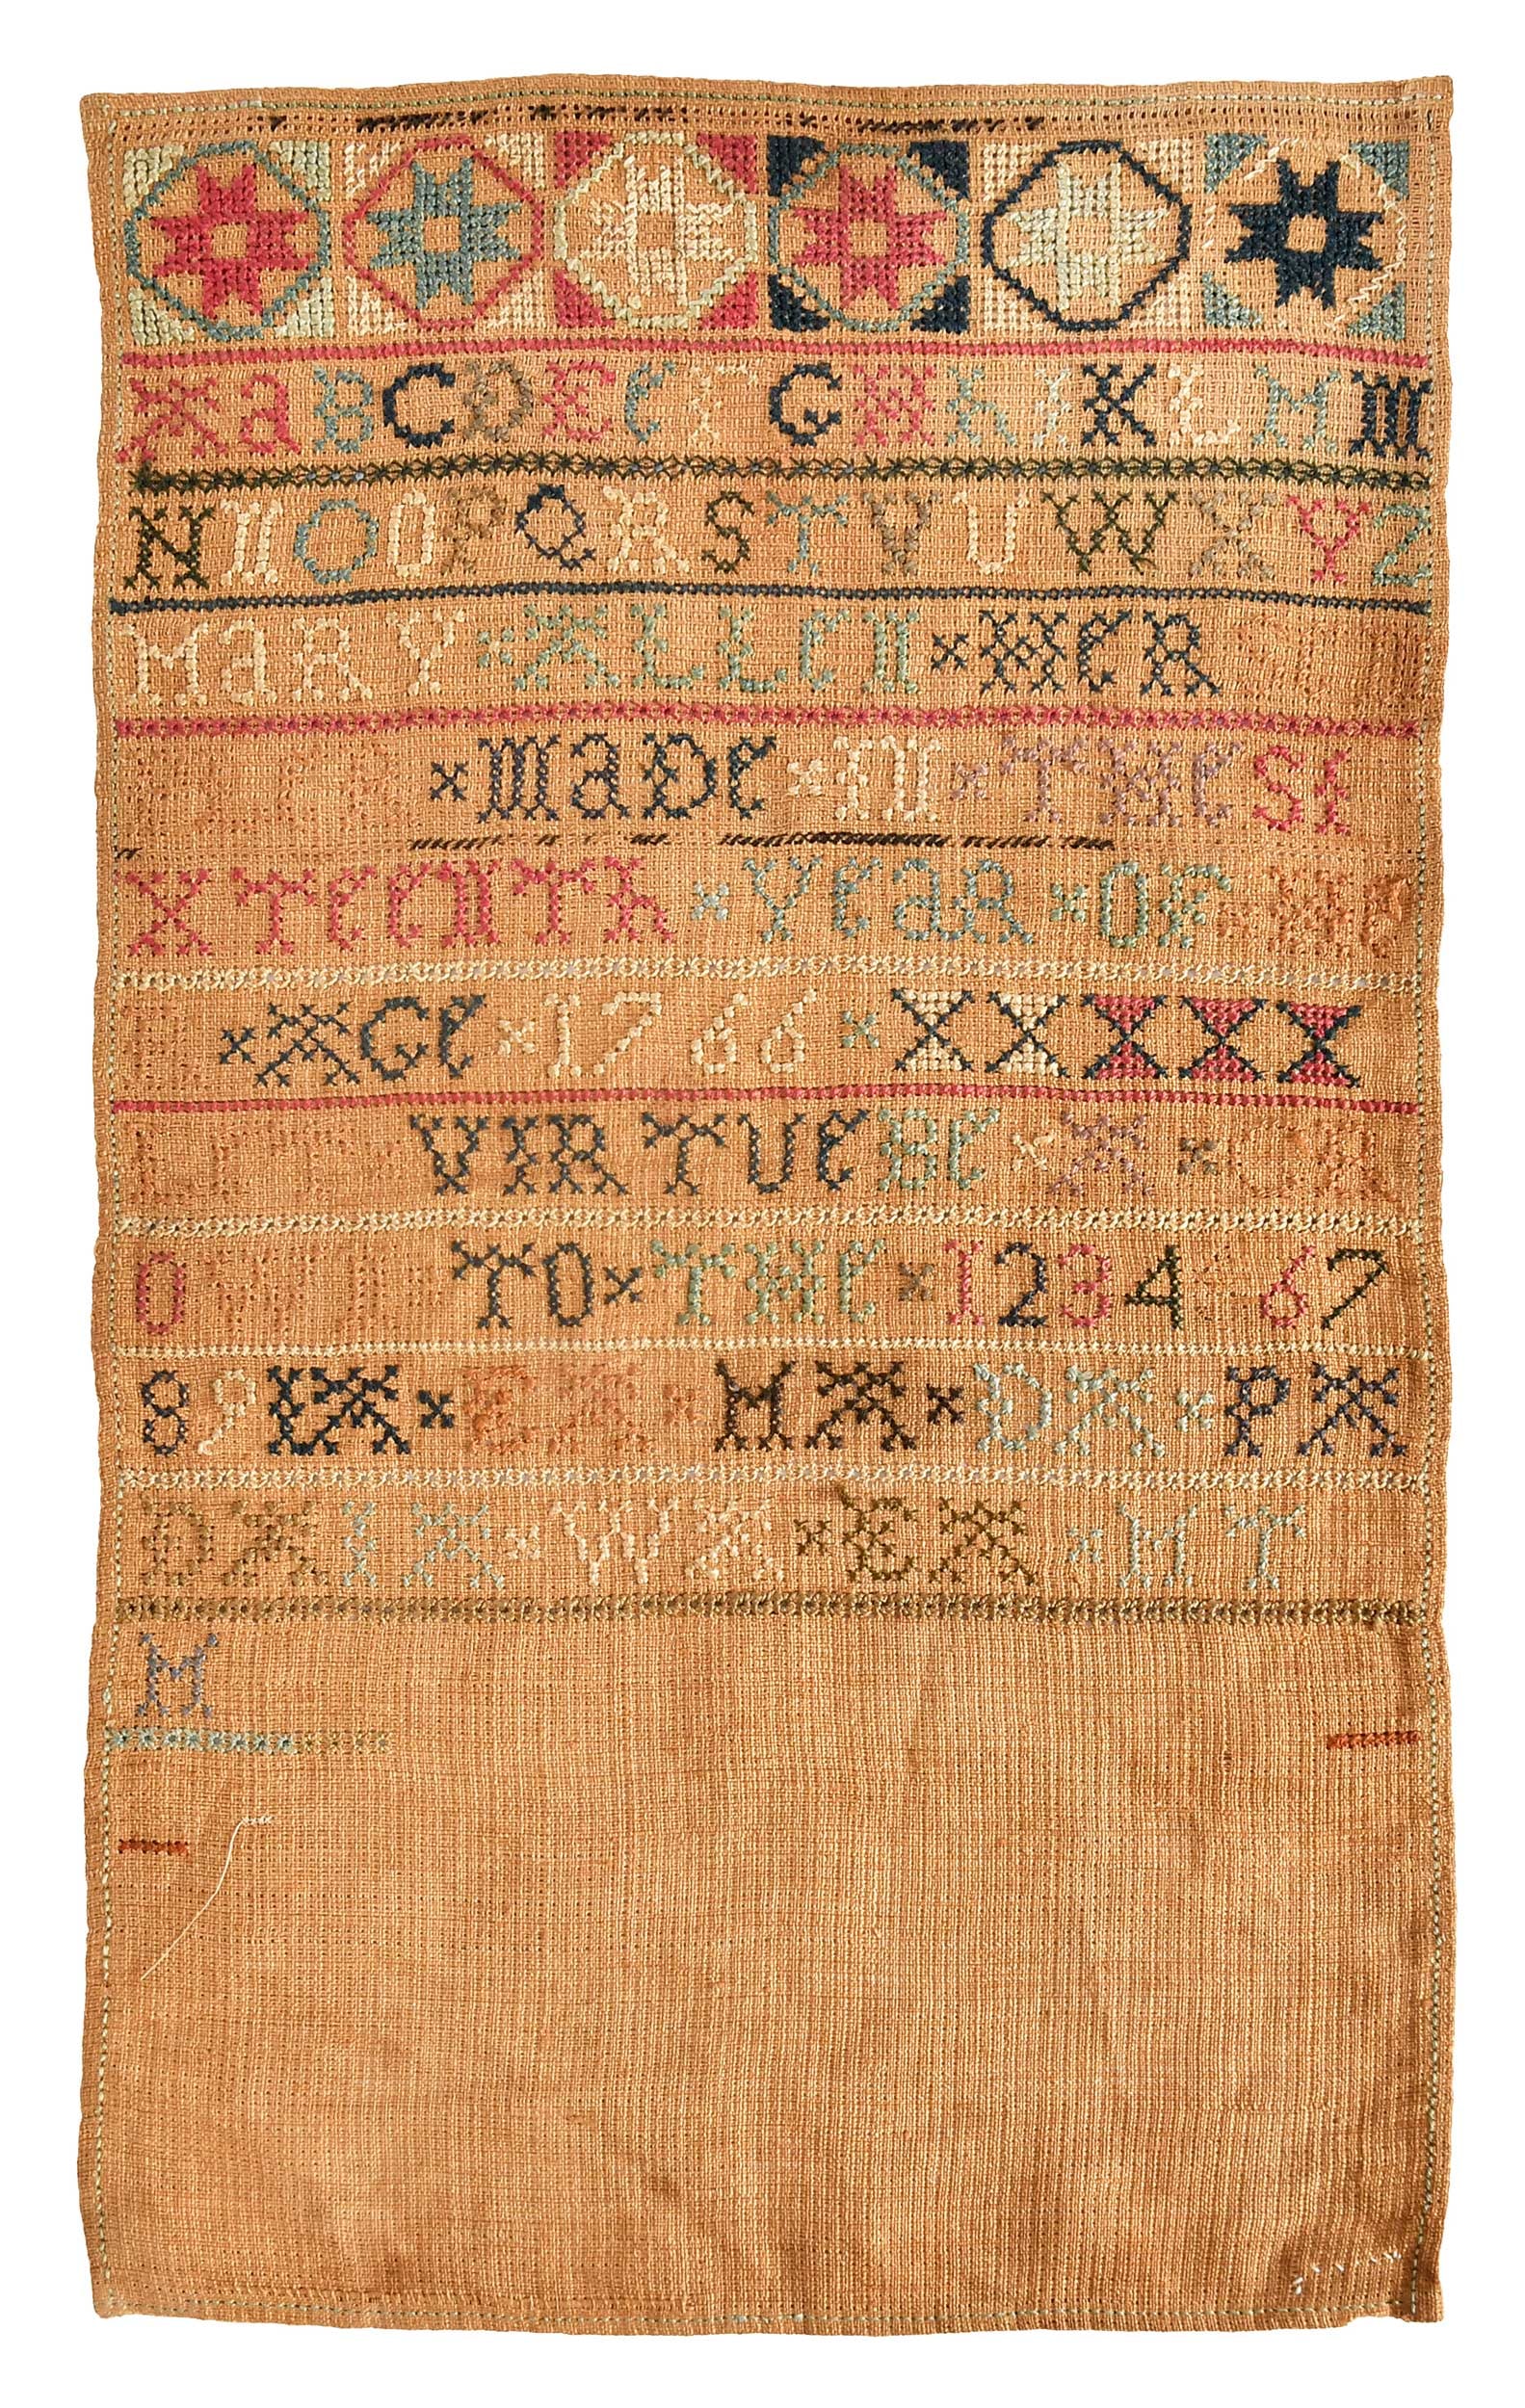 A a B C D E f F G H h I K L M M
N N O O P Q R S T V U W X Y Z
MaRY × ALLeN × HeR
× MaDe × IN × THe SI
XTeeNTh × YeaR × OF × He
× AGe × 1766 × X X X X X
VIRTUe Be × A ×
O TO × THe × 1 2 3 4 6 7
8 9 LA × EA × MA × DA × PA
DA IA × WA × EA × MT
M